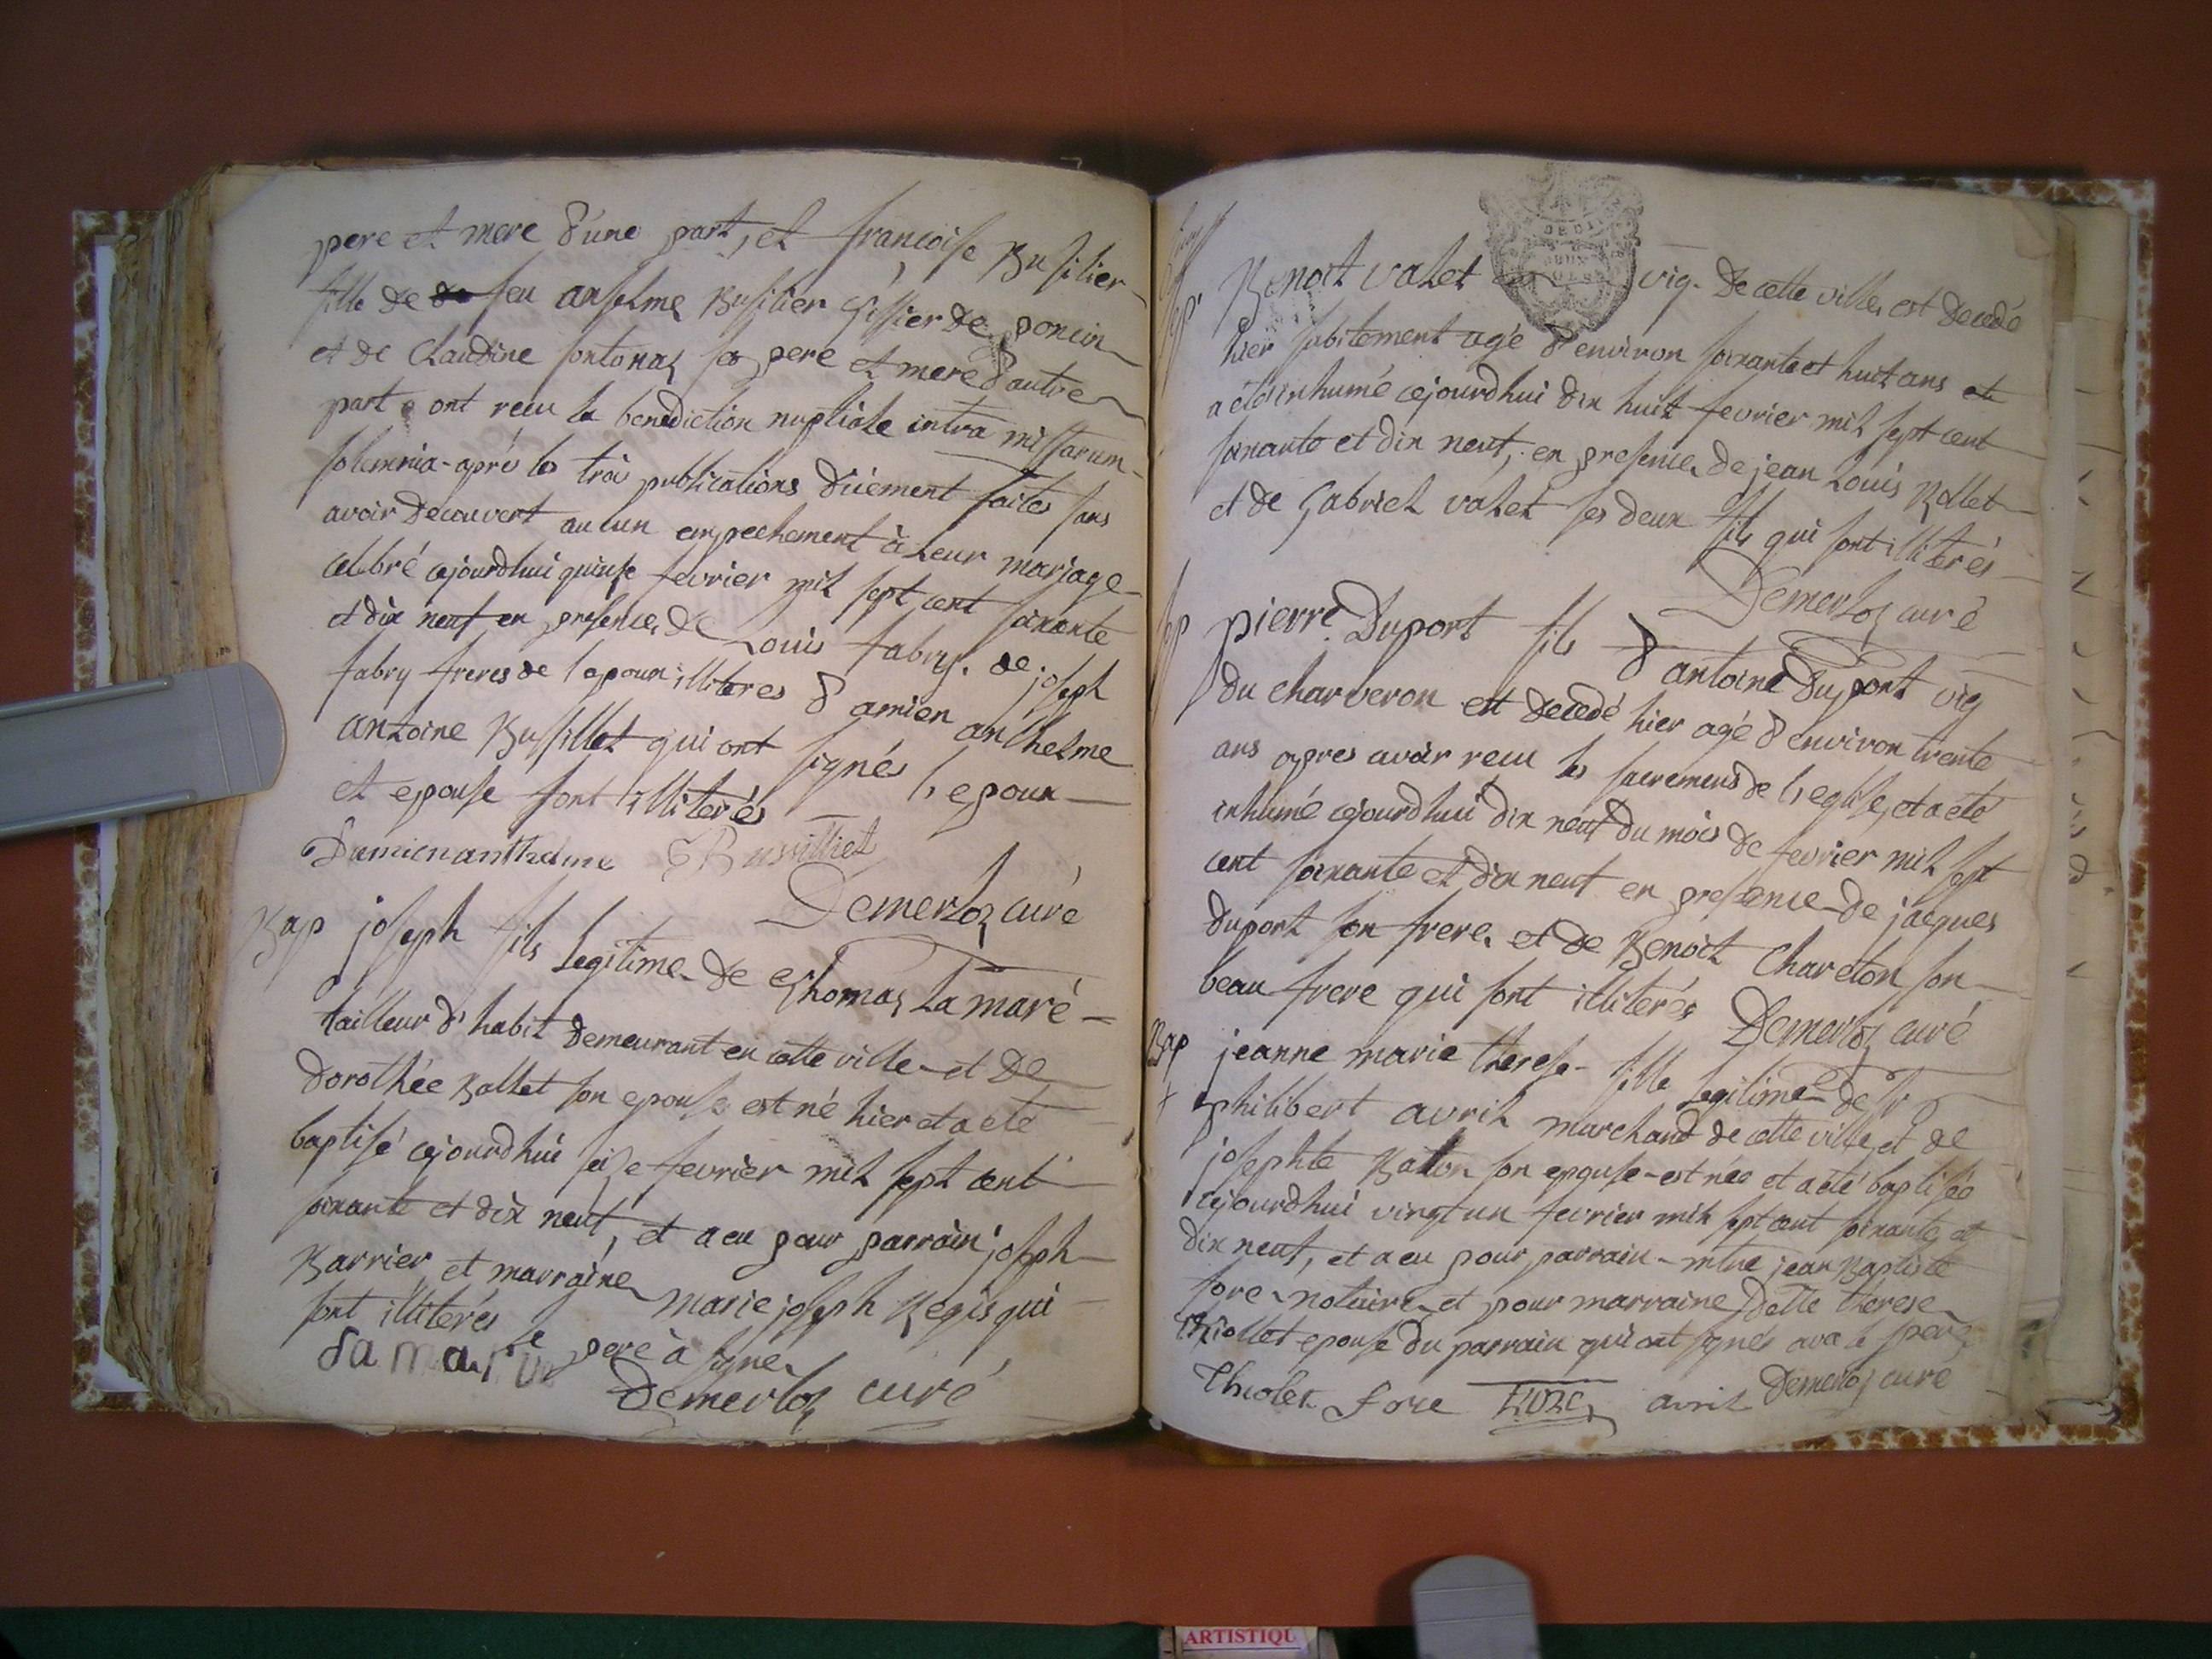 pere et mere d'une part, et françoise Busilier
fille de feu anselme Busilier de poncin
et de Claudine fontonaz ses pere et mere d'autre
part ont recu la benediction nuptiale intra missarum
solemnia - aprés les trois publications düement faites sans
avoir decouvert aucun empechement à leur mariage
celebré cejourdhui quinse fevrier mil sept cent soixante
et dix neuf en presence de Louis fabry. de joseph
fabry freres de l'epoux illiteres d'amien anthelme
antoine Bussillet qui ont signés l'epoux
et epouse sont illiterés
Damienanthelme Bussilliet
Demerloz curé
Bap joseph fils legitime de thomas Lamaré
tailleur d'habit demeurant en cette ville et de
dorothée Bollet son epouse est né hier et a eté
baptisé cejourdhui seise fevrier mil sept cent
soixante et dix neuf, et a eu pour parrain joseph
Barrier et marraine marie joseph Regis qui
sont illiterés le pere à signe
Lamare
Demerloz curé
Sep. Benoit valet vig. de cette ville est decedé
hier subitement agé d'environ soixante et huit ans et
a eté inhumé cejourdhui dix huit fevrier mil sept cent
soixante et dix neuf, en presence de jean Louis Vallet
et de gabriel valet ses deux fils qui sont illiterés
Demerloz curé
Sep pierre Duport fils d'antoine Duport vig
du charveron est decedé hier agé d'environ trente
ans apres avoir recu les sacremens de l'eglise, et a eté
inhumé cejourdhui dix neuf du mois de fevrier mil sept
cent soixante et dix neuf en presence de jacques
duport son frere et de Benoit Chareton son
beau frere qui sont illiterés Demerloz curé
Bap jeanne marie therese fille legitime de Sr
+ philibert avril marchand de cette ville et de
josephte Baton son epouse - est née et a eté baptisée
cejourdhui vingt un fevrier mil sept cent soixante et
dix neuf, et a eu pour parrain - mtre jean Baptiste
fore notaire et pour marraine delle therese
thiollet epouse du parrain qui ont signés avec le pere
thiolet fore fore avril Demerloz curé
ARTISTIQU